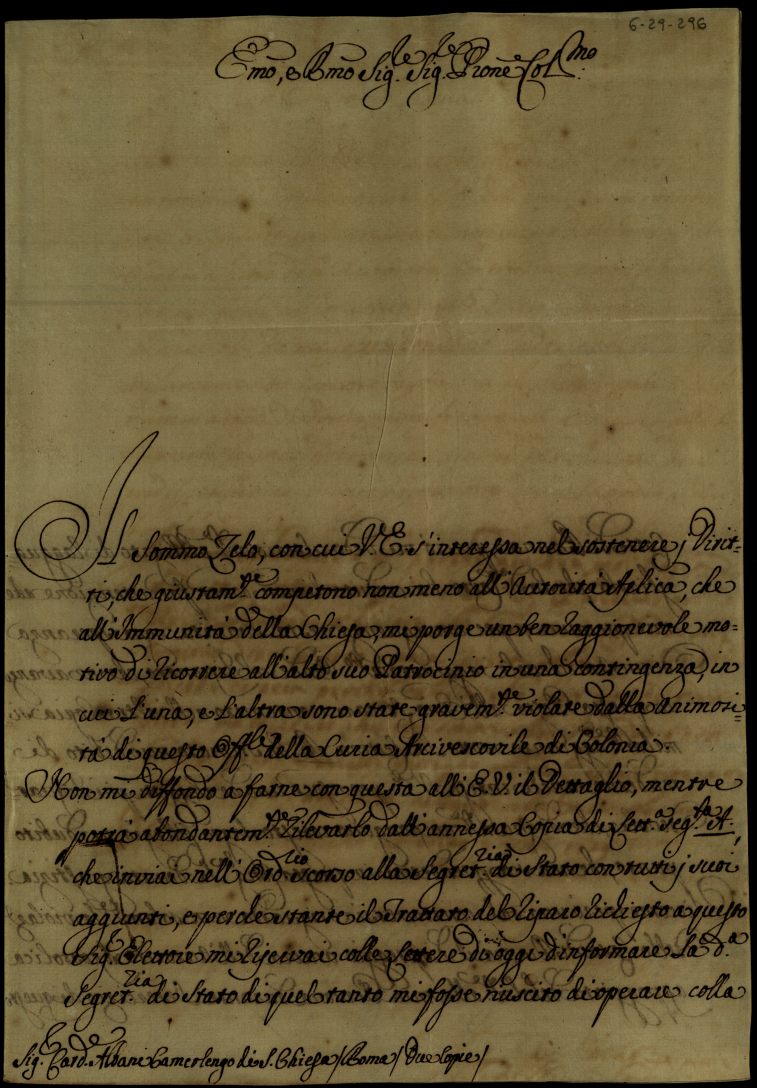 6-29-296
Emo, e Rmo Sig.re Sig.re Prone Col.mo
Il Sommo Zelo, con cui V.E. s'interessa nel sostenere j Dirit-
ti, che giustam.te competono non meno all'Autorità Aplica, che
all'Immunità della Chiesa, mi porge un ben raggionevole mo=
tivo di ricorrere all'alto suo Patrocinio in una contingenza, in
cui l'una, e l'altra sono state gravem.te violate dalla Animosi=
tà di questo Off.le della Curia Arcivescovile di Colonia.
Non mi diffondo a farne con questa all'E.V. il Dettaglio, mentre
potrà abondantem.te rilevarlo dall'annessa Copia di Lett.a seg.ta A.,
che inviai nell'Ord.rio scorso alla Segret.ria di Stato con tutti j suoi
aggiunti, e perche stante il Trattato del riparo richiesto a questo
Sig.r Elettore mi riservai colle Lettere di oggi d'informare la d.a
Segret.ria di Stato di quel tanto mi fosse riuscito di operare colla
Sig. Card.le Albani Camerlengo di S. Chiesa / Roma / Due Copie /